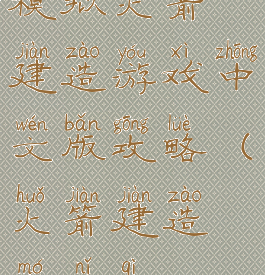 模拟火箭
jiàn zào yóu xì zhōng
建造游戏中
wén bǎn gōng lüè
文版攻略（
huǒ jiàn jiàn zào
火箭建造
mó nǐ qì